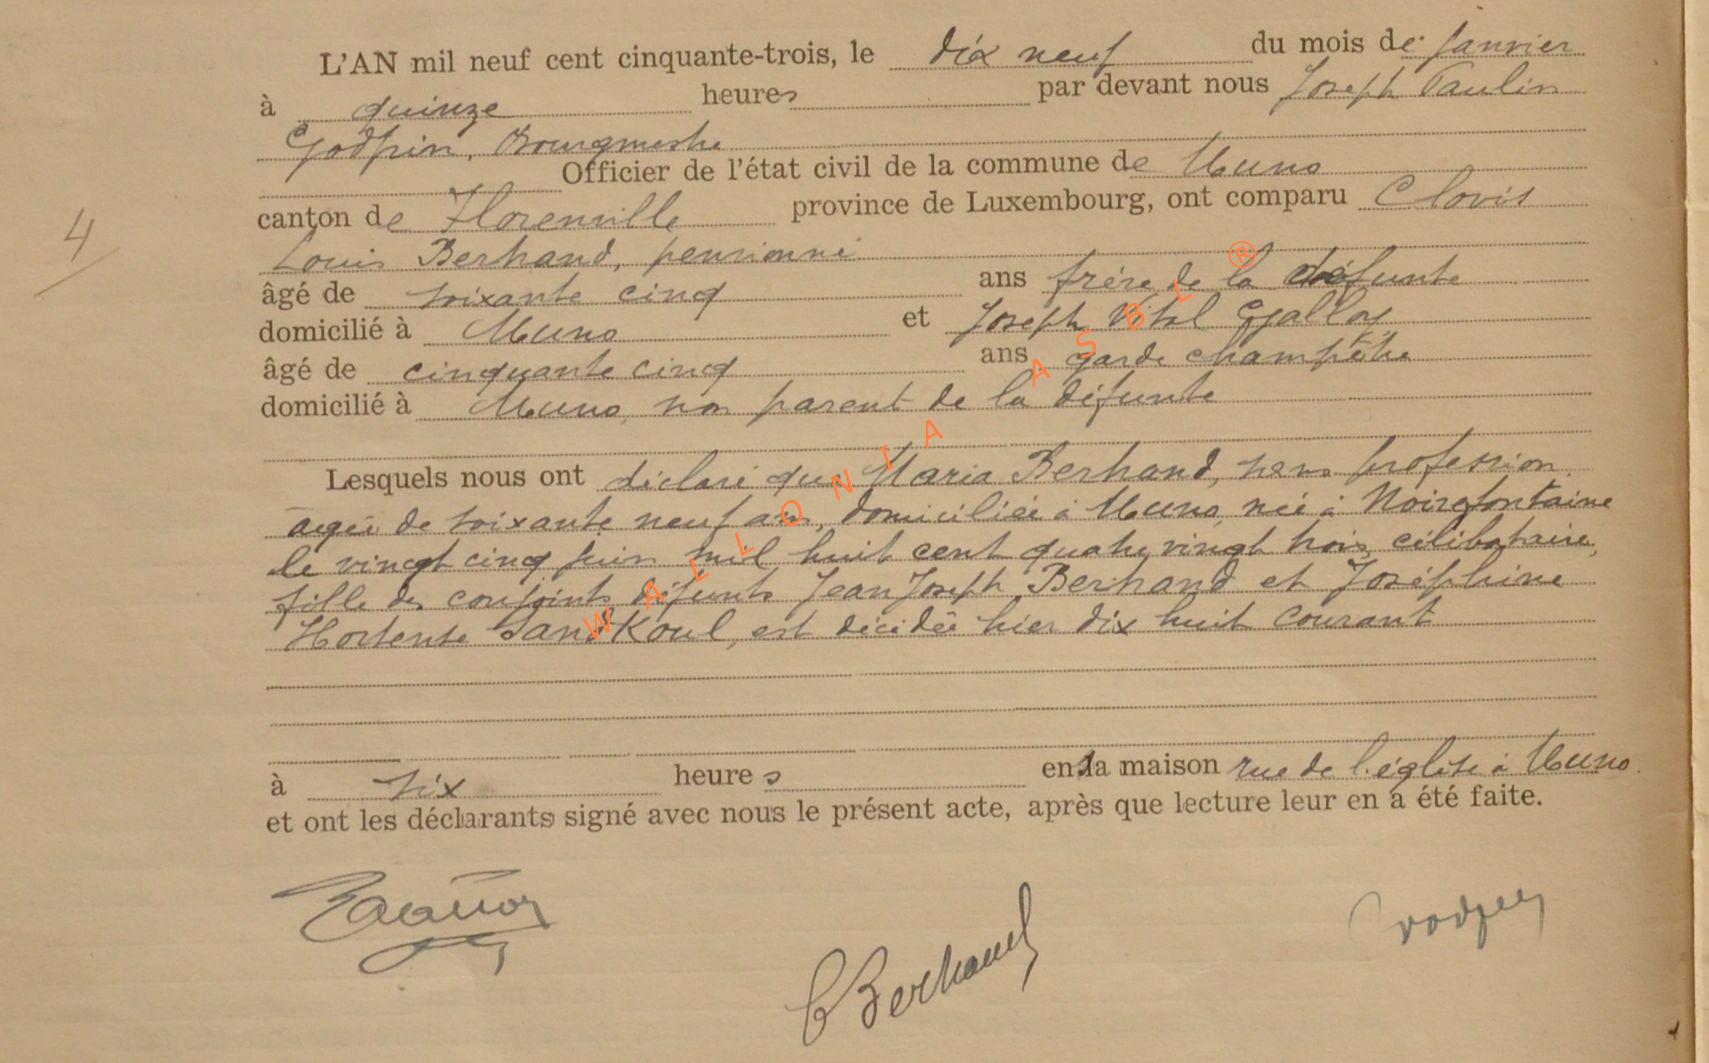 L'AN mil neuf cent cinquante-trois, le dix neuf du mois de janvier
à quinze heures par devant nous Joseph Paulin
Godfrin, Bourgmestre
Officier de l'état civil de la commune de Muno
canton de Florenville province de Luxembourg, ont comparu Clovis
Louis Bertrand, pensionné
âgé de soixante cinq ans frère de la défunte
domicilié à Muno et Joseph Vital Galloy
âgé de cinquante cinq ans garde champêtre
domicilié à Muno, non parent de la défunte
Lesquels nous ont déclaré que Maria Bertrand, sans profession,
agée de soixante neuf ans, domiciliée à Muno, née à Noirefontaine
le vingt cinq juin mil huit cent quatre vingt trois, célibataire,
fille des conjoints défunts Jean Joseph Bertrand et Joséphine
Hortense est décédée hier dix huit courant
à six heures en la maison rue de l'église à Muno.
et ont les déclarants signé avec nous le présent acte, après que lecture leur en a été faite.
C Bertrand
4
WALLONIA ASBL ®